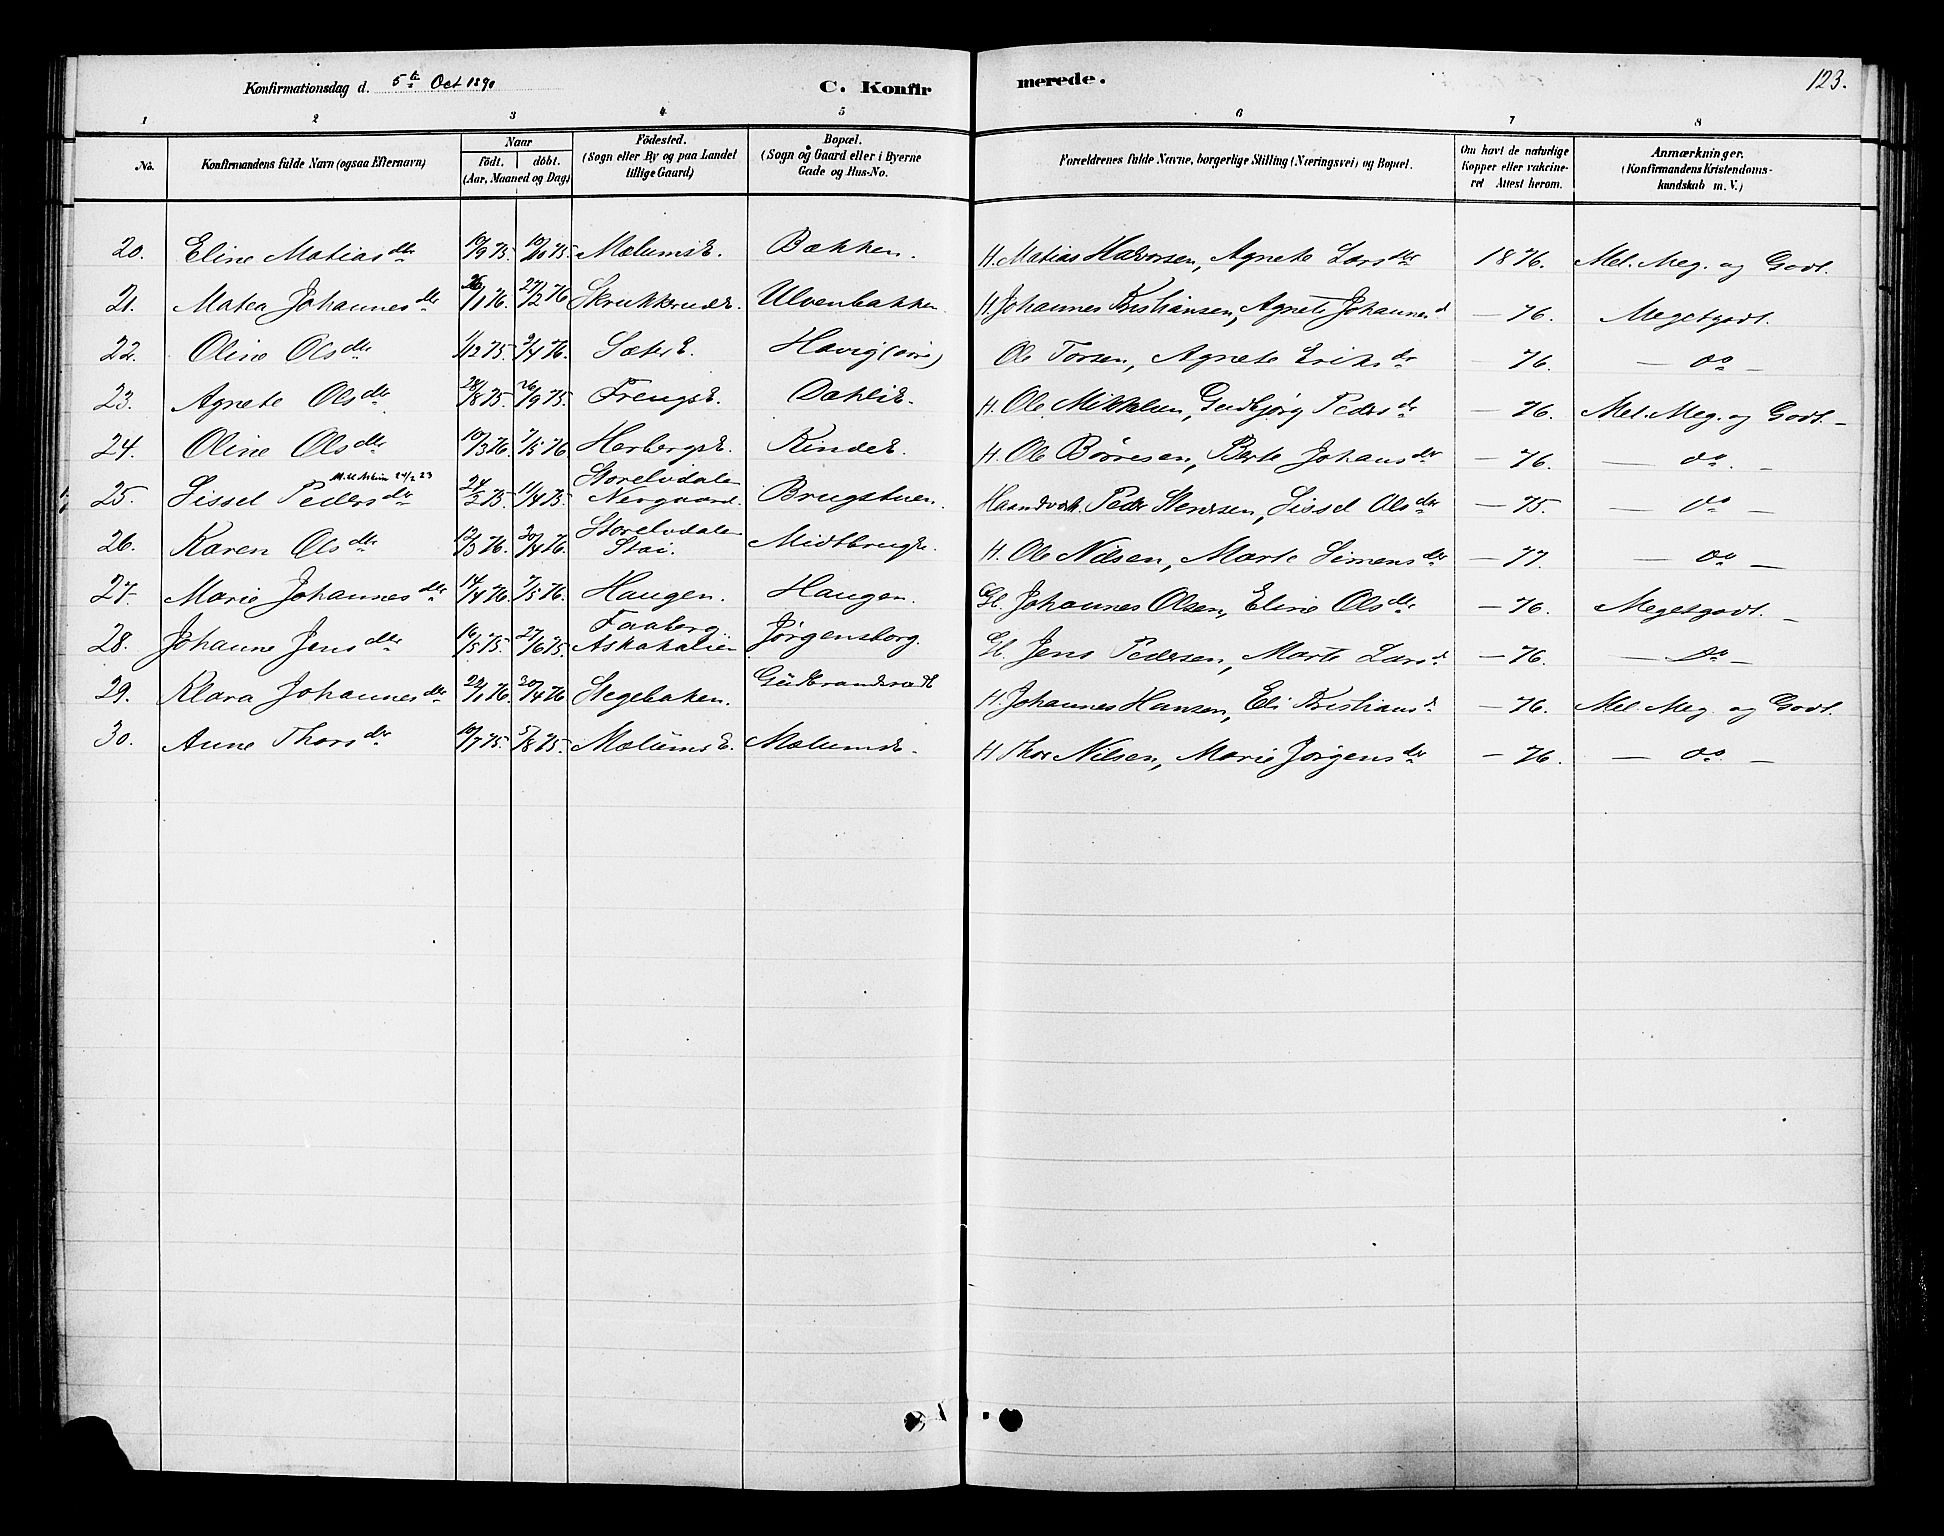 Konfirmationsdag d. 5te Oct 1890 C. Konfirmerede. 123.
1 2 3 4 5 6 7 8
No. Konfirmandens fulde Navn (ogsaa Efternavn) Naar födt. döbt. (Aar, Maaned og Dag) Födested. (Sogn eller By og paa Landet tillige Gaard) Bopæl. (Sogn og Gaard eller i Byerne Gade og Hus-No. Forældrenes fulde Navne, borgerlige Stilling (Næringsvei) og Bopæl. Om havt de naturlige Kopper eller vakcineret Attest herom. Anmærkninger. (Konfirmandens Kristendomskundskab m. V.)
20. Eline Matiasdtr 10/9 75. 10/10 75. MælumsE. Bækken. H. Matias Halvorsen, Agnete Larsdtr 1876. Mel. Meg. og Godt.
21. Matea Johannesdtr 26/1 76. 27/2 76 SkrukkerudE. Ulvenbakken. H. Johannes Kristiansen, Agnete Johannesd — 76. Megetgodt.
22. Oline Olsdtr 1/12 75. 2/4 76. SæterE. Havig Ole Torsen, Agnete Eriksdr — 76. — do —
23. Agnete Olsdtr 28/8 75. 26/9 75. FrengsE. DahliE. H. Ole Mikkelsen, Gudbjørg Pedersdr — 76. Mel. Meg. og Godt. —
24. Oline Olsdtr 10/3 76. 7/5 76 HerbergsE. KindeE. H. Ole Børresen, Berte Johansdtr — 76. — do. —
25. Sissel Pedersdtr 24/2 23 24/2 75. 11/4 75. Storelvdalen Nergaard. Brugstuen. Haandværk. Peder Stenersen, Sissel Olsdtr — 75. — do —
26. Karen Olsdtr 12/3 76. 20/4 76. Storelvdalen Stai. MidtbrugE. H. Ole Nilsen, Marte Simensdtr — 77. — do —
27. Marie Johannesdtr 14/4 76. 7/5 76. Haugen. Haugen. Gb. Johannes Olsen, Eline Olsdtr — 76. Megetgodt. —
28. Johanne Jensdtr 16/5 75. 27/6 75. Faaberg Jørgensborg. Gb. Jens Pedersen, Marte Larsd — 76. — do —
29. Klara Johannesdtr 22/1 76. 30/4 76 Stegebaken. H. Johannes Hansen, Eli Kristiansd — 76. Mel. Meg. og Godt.
30. Anne Thorsdtr 10/7 75. 5/8 75. MælumsE. MælumsE. H Thor Nilsen, Marie Jörgensdtr — 76. — do —